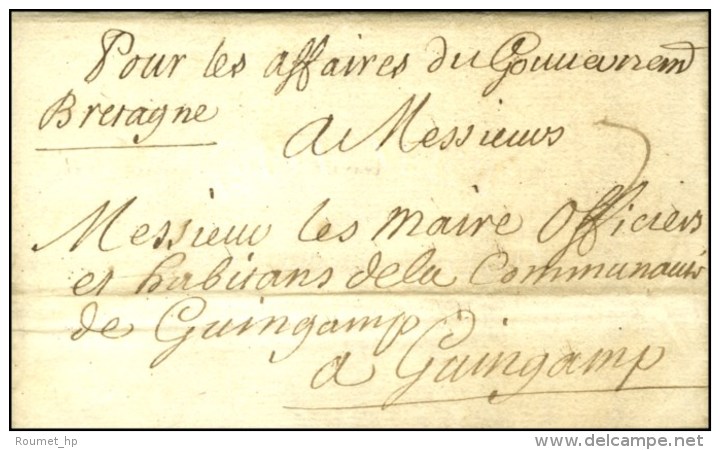 Pour les affaires du Gouuernemt
Bretagne
A Messieurs
Messieurs les Maire Officiers
et habitans de la Communauté
de Guingamp
a Guingamp
Roumet_hp
delcampe.net